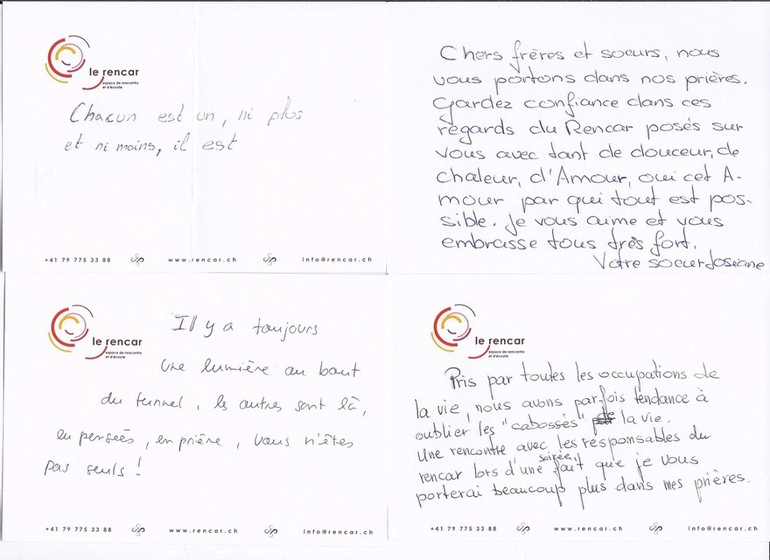 le rencar
espace de rencontre
et d'écoute
Chacun est un, ni plus
et ni moins, il est
+41 79 775 33 88 www.rencar.ch info@rencar.ch
Chers frères et soeurs, nous
vous portons dans nos prières.
Gardez confiance dans ces
regards du Rencar posés sur
vous avec tant de douceur, de
chaleur, d'Amour, oui cet A-
mour par qui tout est pos-
sible. Je vous aime et vous
embrasse tous très fort.
Votre soeur Josiane
le rencar
espace de rencontre
et d'écoute
Il y a toujours
une lumière au bout
du tunnel, les autres sont là,
en pensées, en prière, vous n'êtes
pas seuls !
+41 79 775 33 88 www.rencar.ch info@rencar.ch
le rencar
espace de rencontre
et d'écoute
Pris par toutes les occupations de
la vie, nous avons parfois tendance à
oublier les "cabossés" de la vie.
Une rencontre avec les responsables du
rencar lors d'une soirée, fait que je vous
porterai beaucoup plus dans mes prières.
+41 79 775 33 88 www.rencar.ch info@rencar.ch